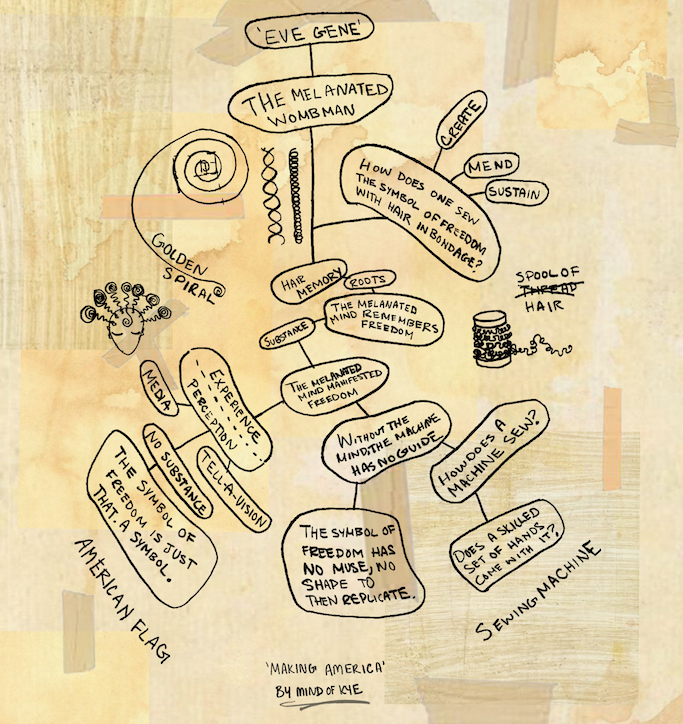 'EVE GENE'
THE MELANATED
WOMBMAN
CREATE
MEND
SUSTAIN
HOW DOES ONE SEW
THE SYMBOL OF FREEDOM
WITH HAIR IN BONDAGE?
GOLDEN
SPIRAL
HAIR
MEMORY
ROOTS
SPOOL OF
THREAD
HAIR
THE MELANATED
MIND REMEMBERS
FREEDOM
SUBSTANCE
THE MELANATED
MIND MANIFESTED
FREEDOM
EXPERIENCE
PERCEPTION
MEDIA
NO SUBSTANCE
TELL-A-VISION
THE SYMBOL OF
FREEDOM IS JUST
THAT. A SYMBOL.
AMERICAN FLAG
WITHOUT THE
MIND, THE MACHINE
HAS NO GUIDE.
THE SYMBOL OF
FREEDOM HAS
NO MUSE, NO
SHAPE TO
THEN REPLICATE.
HOW DOES A
MACHINE SEW?
DOES A SKILLED
SET OF HANDS
COME WITH IT?
SEWING MACHINE
'MAKING AMERICA'
BY MIND OF KYE